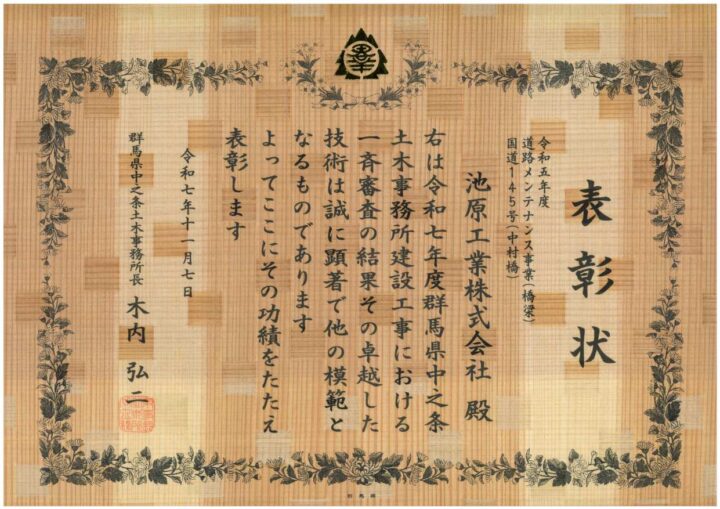 表彰状
令和五年度
道路メンテナンス事業(橋梁)
国道145号(中村橋)
池原工業株式会社 殿
右は令和七年度群馬県中之条
土木事務所建設工事における
一斉審査の結果その卓越した
技術は誠に顕著で他の模範と
なるものであります
よってここにその功績をたたえ
表彰します
令和七年十一月七日
群馬県中之条土木事務所長 木内 弘二